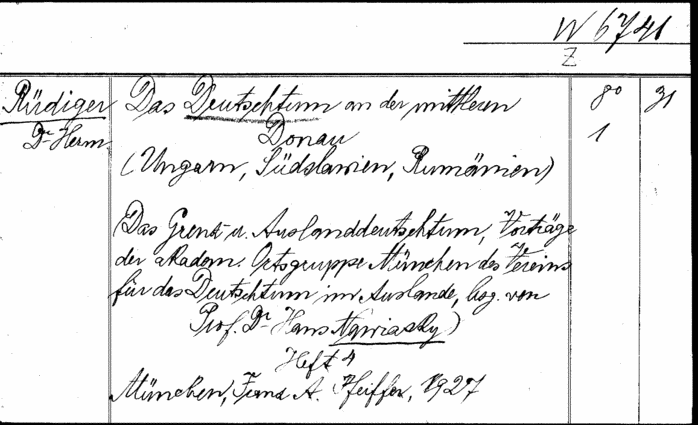 W 6741
Z
Rüdiger Das Deutschtum an der mittleren 8° 31
Dr Herm. Donau 1
(Ungarn, Südslawien, Rumänien)
(Das Grenz- u. Auslanddeutschtum, Vorträge
der akadem. Ortsgruppe München des Vereins
für das Deutschtum im Auslande, hsg. von
Prof. Dr Hans Nawiasky)
Heft 4
München, A. Pfeiffer, 1927